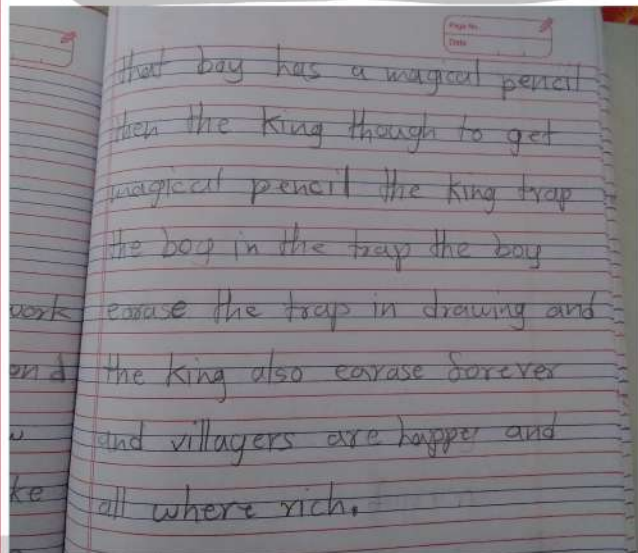 Page No.
Date
that boy has a magical pencil
then the king though to get
magical pencil the king trap
the boy in the trap the boy
work
earase the trap in drawing and
the king also earase forever
and villagers are happy and
ke
all where rich.